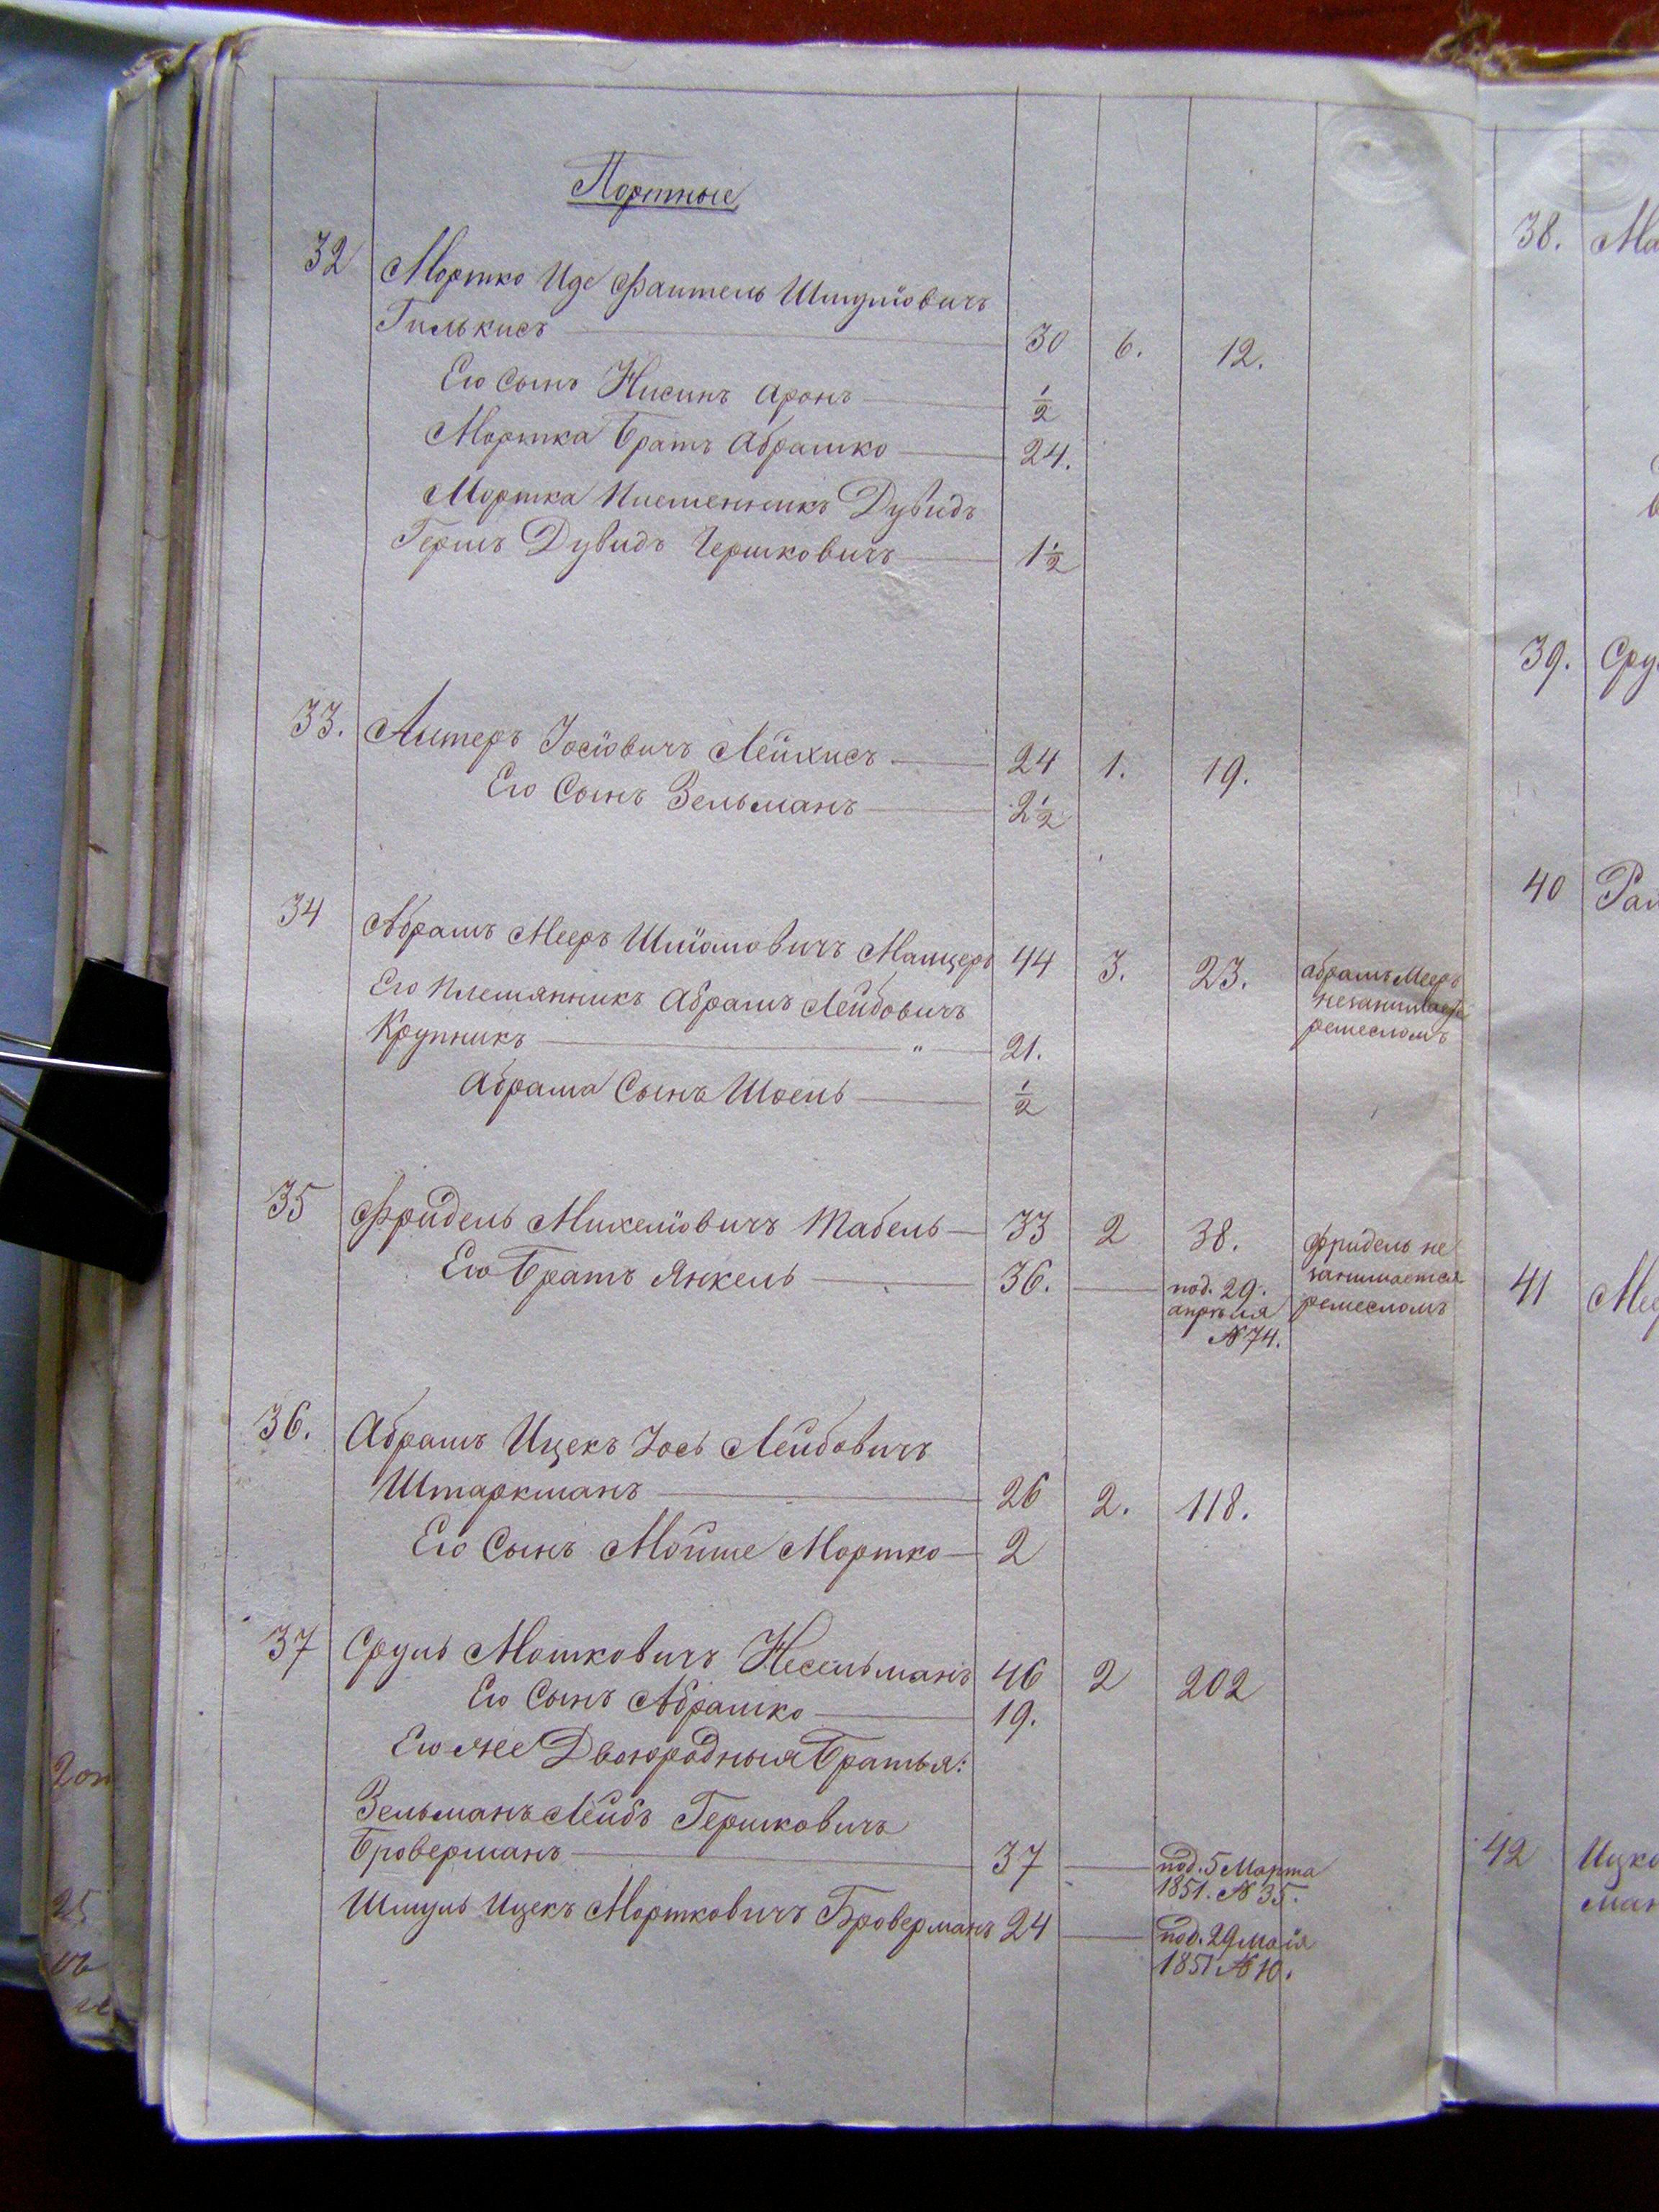 Портные
32 Мортко Иде Файтель Шмуліовичъ
Гилькисъ 30 6. 12.
Его Сынъ Нисинъ Аронъ 1/2
Мортка Братъ Абрашко 24.
Мортка Племенникъ Дувидъ
Гершъ Дувидъ Гершковичъ 1 1/2
33. Алтеръ Іосіовичъ Лейхисъ 24 1. 19.
Его Сынъ Зельманъ 2 1/2
34 Абрамъ Мееръ Шліомовичъ Манцеръ 44 3. 23. абрамъ Мееръ
незанимается
ремесломъ
Его Племянникъ Абрамъ Лейбовичъ
Крупникъ " 21.
Абрама Сынъ Шоель 1/2
35 Фридель Михеліовичъ Табель 33 2 38. фридель не
занимается
ремесломъ
Его Братъ Янкель 36. под. 29.
апрѣля
№ 74.
36. Абрамъ Ицекъ Іось Лейбовичъ
Штаркманъ 26 2. 118.
Его Сынъ Мойше Мортко 2
37 Сруль Мошковичъ Несельманъ 46 2 202
Его Сынъ Абрашко 19.
Его же Двоюродныя Братья:
Зельманъ Лейбъ Гершковичъ
Броверманъ 37 под. 5 Марта
1851. № 35.
Шмуль Ицекъ Мортковичъ Броверманъ 24 под. 29 маія
1851 № 10.
38. Ма
39. Сру
40
41
42 Ицко
ман